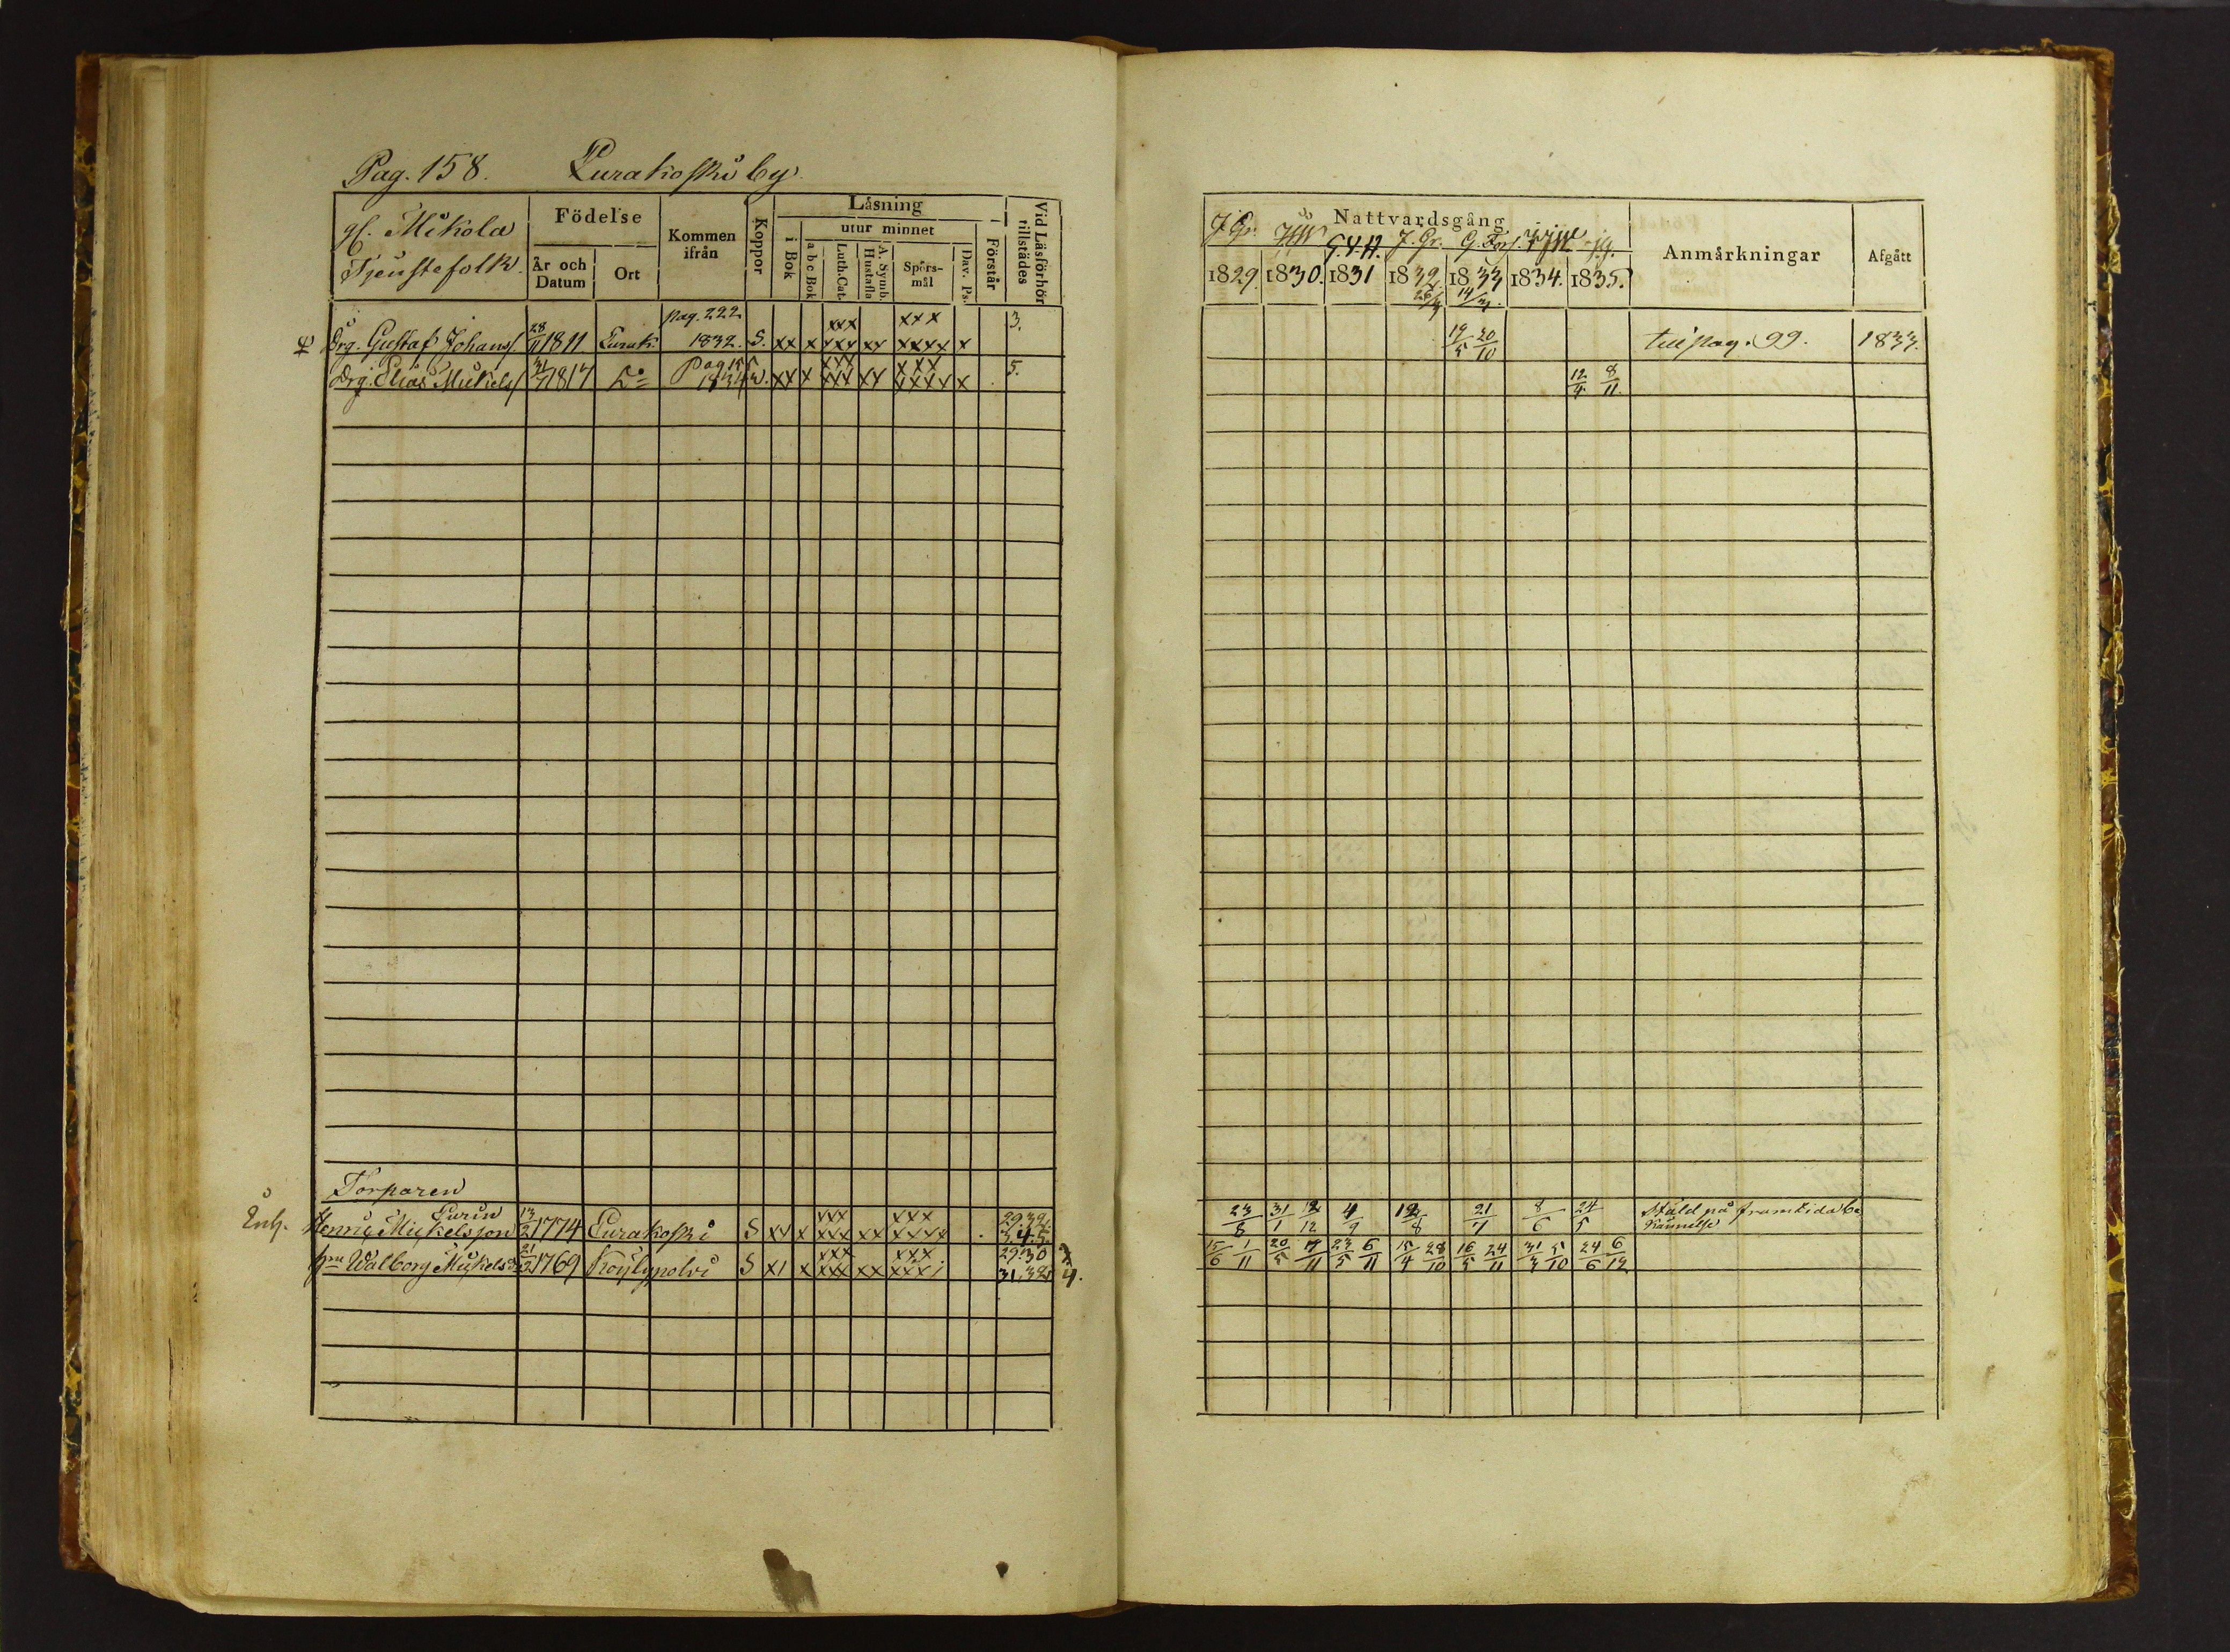 Pag. 158. Eurakoski by
gl. Mikola
Tjenstefolk.
Födelse
År och Datum
Ort
Kommen ifrån
Koppor
Låsning
i Bok
utur minnet
a b c Bok
Luth. Cat.
A. Symb. Hustafla
Spörs-mål
Dav. Ps.
Förstår
Vid Läsförhör tillstädes
pag. 222 xxx xxx 3.
Drg. Gustaf Johanss. 28/11 1811. Eurak. 1832. S. xx x xxx xx xxxx x
Pag 15 xxx xxx 5.
Drg. Elias Mickels 1817 Do xx x xxx xx xxxx x
Torparen
Enk.
Eurin 13/2 xxx xxx 29.32.
Henric Mickelsson 1774 Eurakoski S xx x xxx xx xxxx 3.4.5.
21/12 xxx xxx 29.30
hu Walborg Mickelsd. 1769 Köylypolvi S x1 x xxx xx xxx1 31.32 4.
Nattvardsgång
J. Gr. G. Fors.
1829. 1830. 1831 1832 1833 1834. 1835.
26/4 14/4.
Anmärkningar
Afgått
19/5 20/10 till pag. 99. 1833.
12/4 8/11
23/8 31/1 12/12 4/9 12/8 21/4 8/6 24/5 Stäld på framtida be
kännelse
15/6 1/11 20/5 7/11 23/5 6/11 15/4 28/10 16/5 24/11 31/3 5/10 24/6 6/12